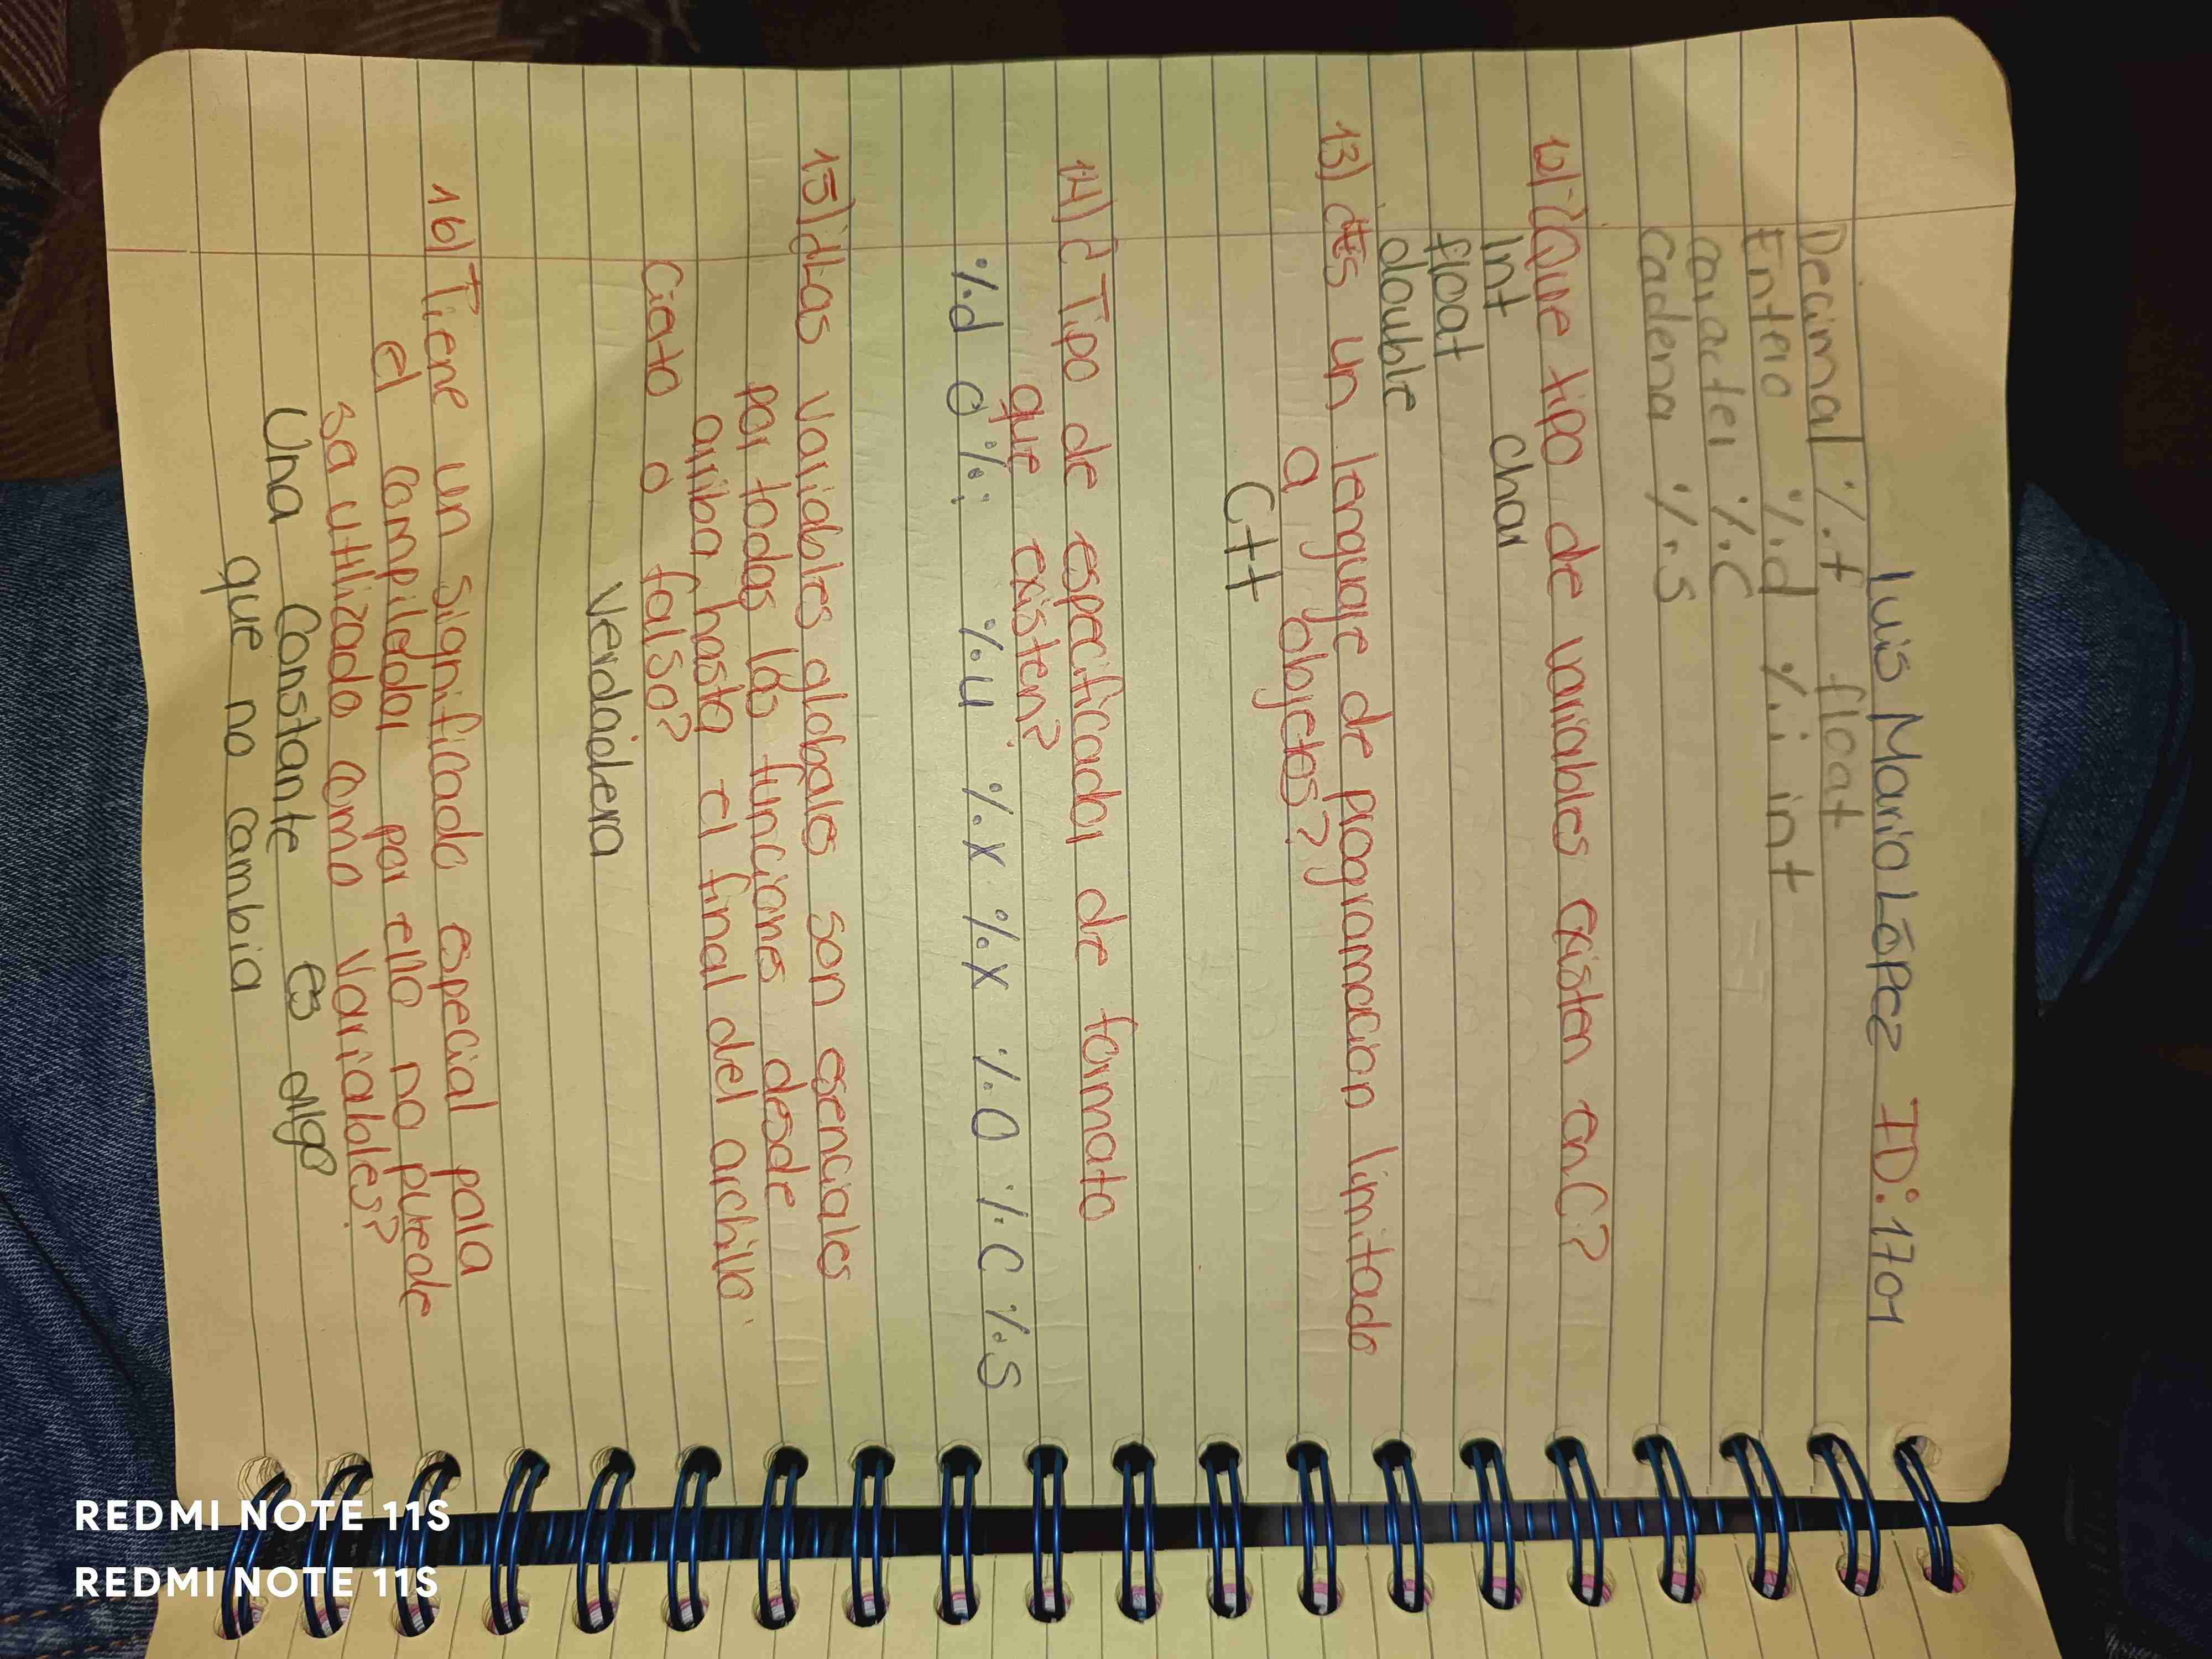 Luis Mario López ID: 1701
Decimal %.f float
Entero %.d %.i int
Caracter %.C
Cadena %.S
12) ¿Que tipo de variables existen en C?
Int char
float
double
13) ¿Es un lenguaje de programacion limitado
a objetos?
C++
14) ¿Tipo de especificador de formato
que existen?
%d o %i %.u %.x %.x %.O %.C %.S
15) ¿Las variables globales son esenciales
por todas las funciones desde
arriba hasta el final del archivo.
Cierto o falso?
Verdadera
16) Tiene un significado especial para
el compilador por ello no puede
sa utilizado como variables?
Una Constante es algo
que no cambia
REDMI NOTE 11S
REDMI NOTE 11S